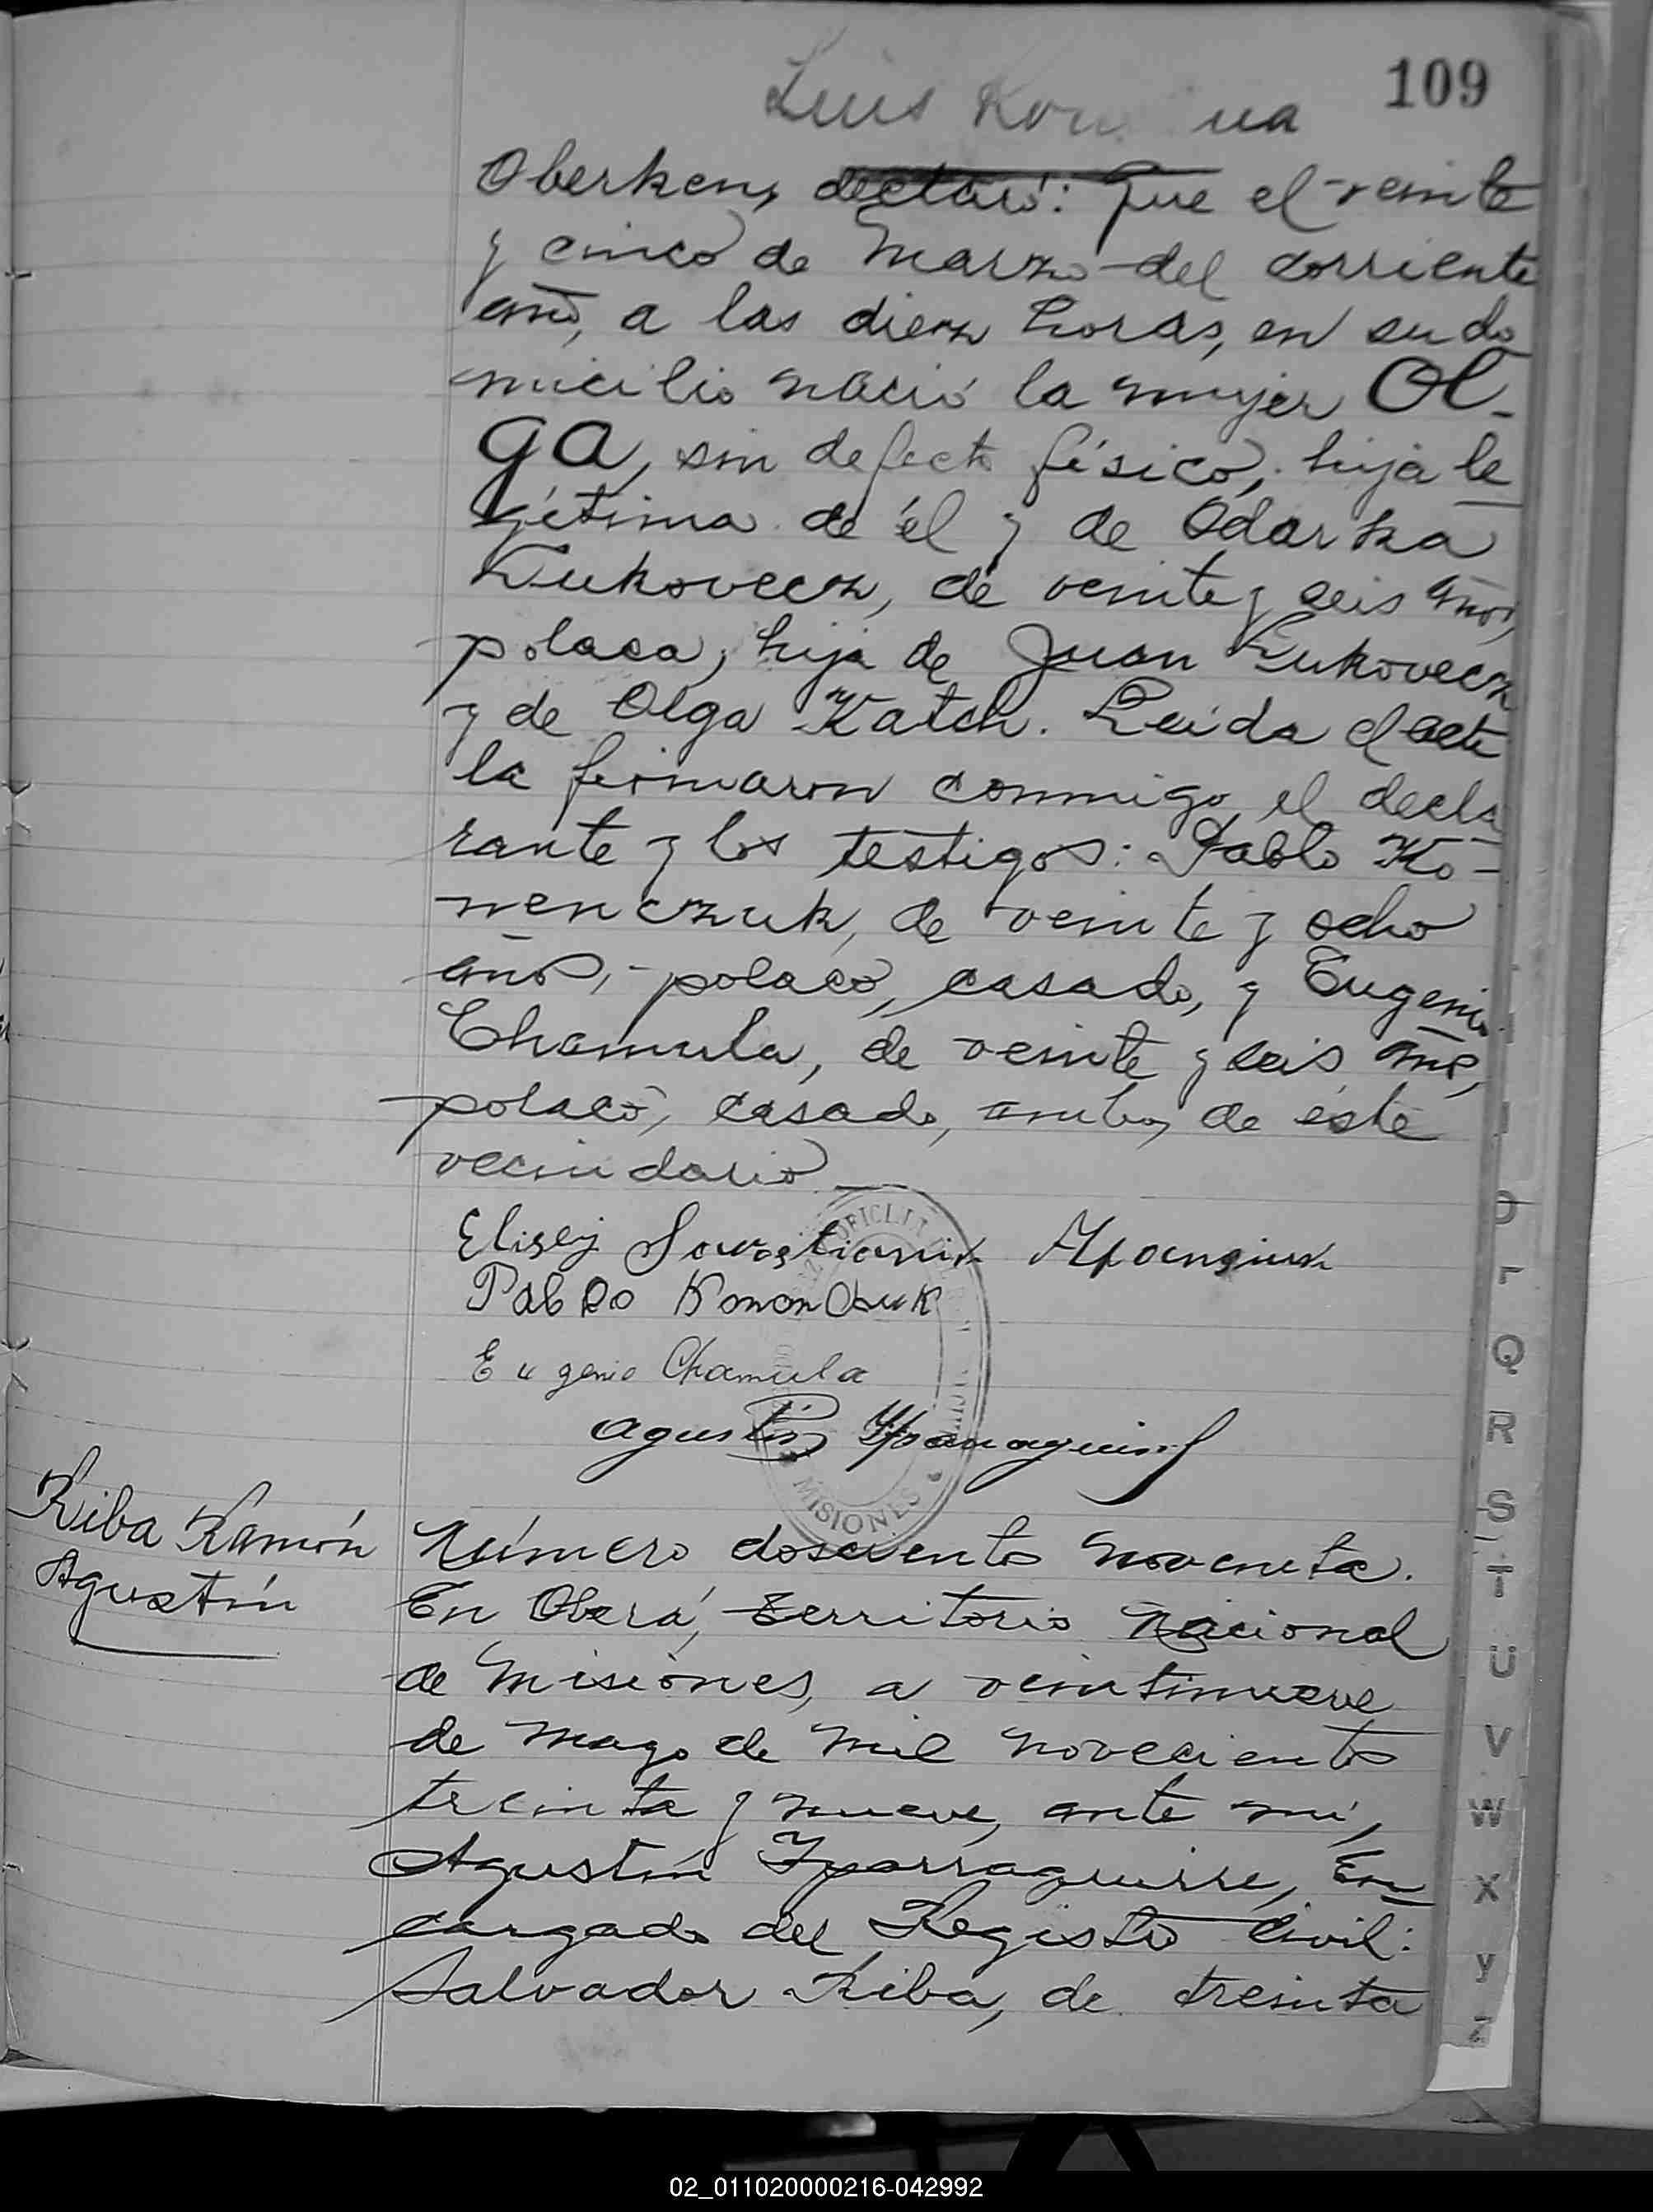 109
Luis
Oberken, declaró: Que el veinte
y cinco de Marzo del corriente
año, a las diez horas, en su do
micilio nació la mujer OL-
GA, sin defecto físico; hija le
gítima de él y de Odarka
Lukovecz, de veinte y seis años,
polaca, hija de Juan Lukovecz
y de Olga Katch. Leida el acta
la firmaron conmigo el decla
rante y los testigos: Pablo Ko-
nenczuk, de veinte y ocho
años, polaco, casado, y Eugenio
Chamula, de veinte y seis años,
polaco, casado, ambos de éste
vecindario
Elisej
Pablo Kononczuk
Eugenio Chamula
Agustín Yparraguirre
MISIONES
Riba Ramón
Agustín
Número doscientos noventa.
En Oberá, Territorio Nacional
de Misiones, a veintinueve
de Mayo de mil novecientos
treinta y nueve, ante mí,
Agustín Yparraguirre, En
cargado del Registro Civil:
Salvador Riba, de treinta
P
Q
R
S
T
U
V
W
X
Y
Z
02_011020000216-042992